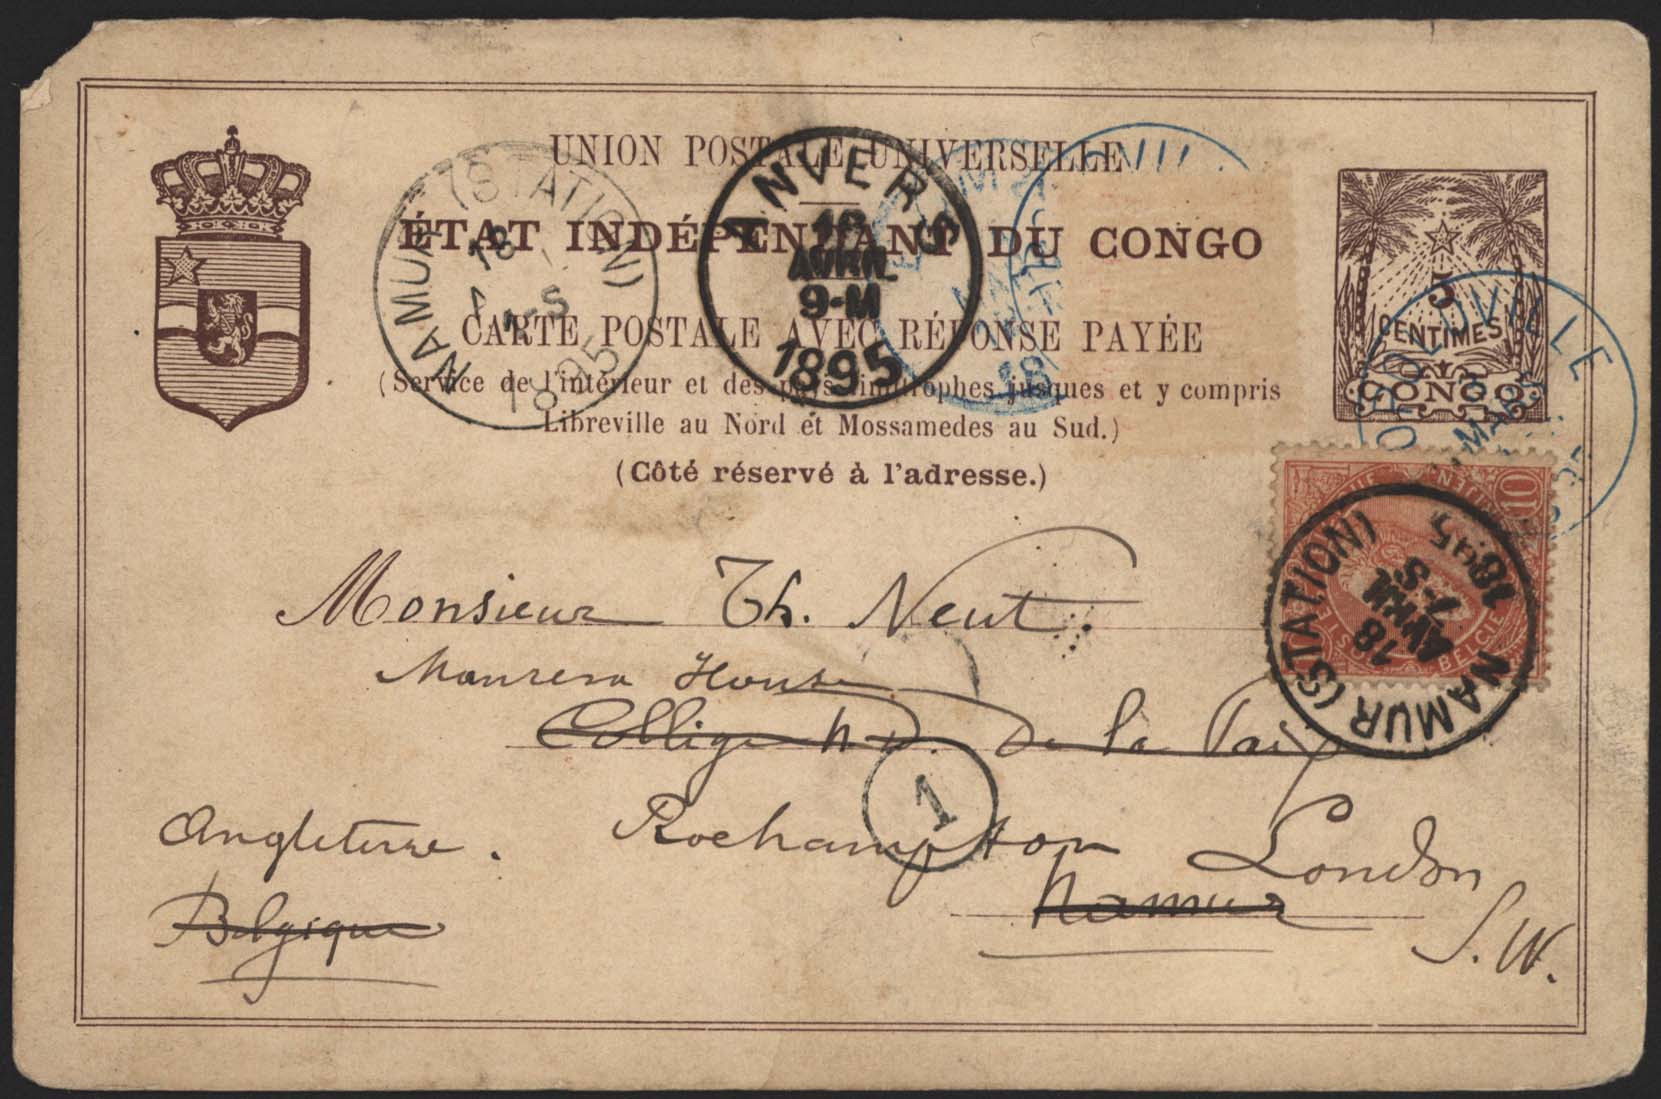 UNION POSTALE UNIVERSELLE
ÉTAT INDÉPENDANT DU CONGO
CARTE POSTALE AVEC RÉPONSE PAYÉE
(Service de l'intérieur et des pays limitrophes jusques et y compris
Libreville au Nord et Mossamedes au Sud.)
(Côté réservé à l'adresse.)
5
CENTIMES
CONGO
NAMUR (STATION)
18
1895
ANVERS
18
AVRIL
9-M
1895
VILLE
MARS
10
BELGIE
NAMUR (STATION)
18
AVRIL
7-S
1895
Monsieur Th. Neut.
Manresa House
Collège N. D. De la Paix
1
Angleterre. Roehampton London
Belgique Namur S.W.